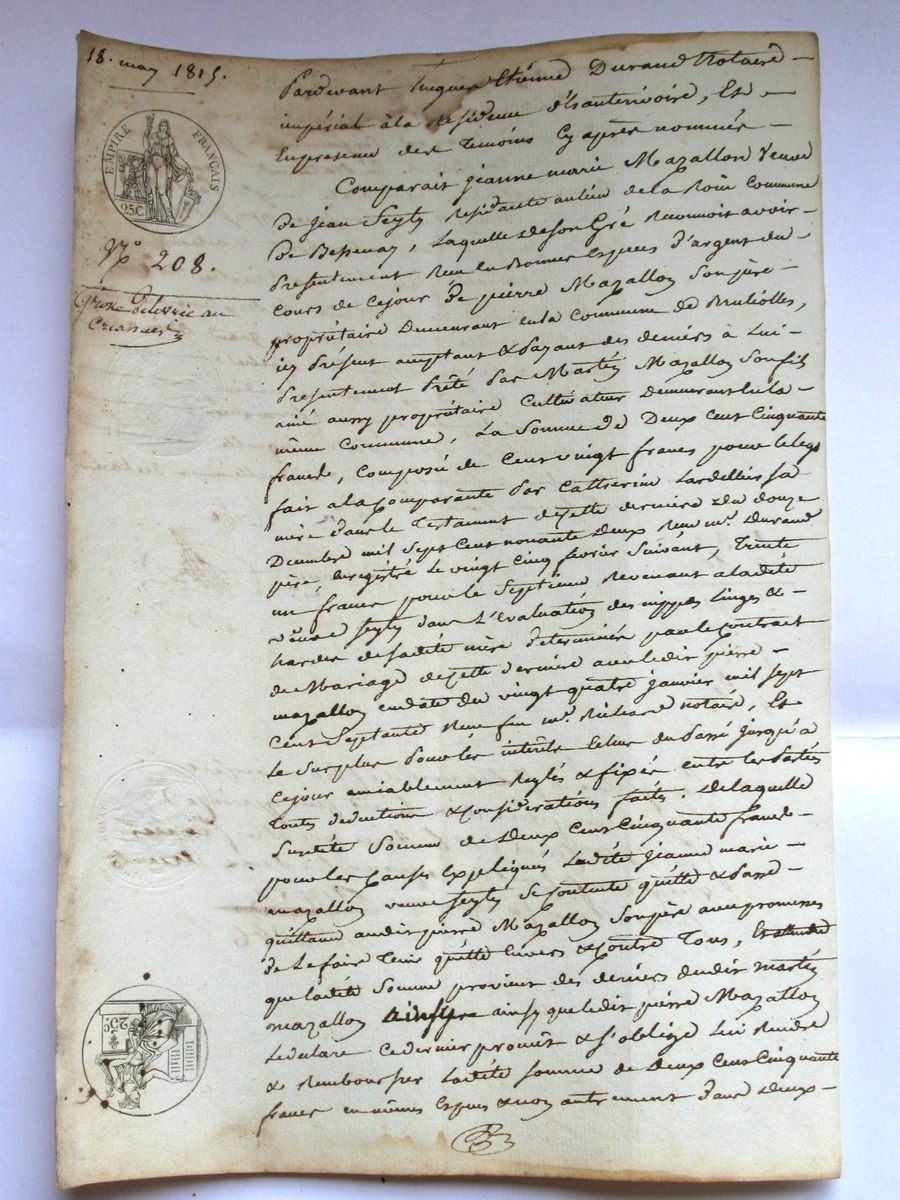 18. may 1815.
EMPIRE FRANÇAIS
25C.
N.° 208.
grosse délivrée au
Créancier
Pardevant hugues Etienne Durand Notaire
impérial à la residence d'hauterivoire, Et
Enpresence des Temoins Cy après nommés
Comparait jeanne marie Mazallon Veuve
de jean Seyty Residante au lieu de la Commune
de Bessenay, Laquelle de son Gré Reconnoit avoir
Presentement Reçu en Bonnes Especes d'argent du
cours de cejour de pierre Mazallon Son père
propriétaire Demeurant en la Commune de Brulliolles,
icy Présent acceptant & payant des deniers à Lui
Presentement Prêté Par Martin Mazallon Son fils
ainé aussy propriétaire Cultivateur Demeurant en la
même Commune, La Somme de Deux Cent Cinquante
francs, Composée de Cent vingt francs pour le legs
fait a la Comparante Par Catherine Lardellier sa
mère dans le Testament de cette dernière du douze
Decembre mil Sept Cent nonante Deux Reçu m.e Durand
père, Enregistré le vingt cinq fevrier Suivant, Trente
un francs pour le Septieme Revenant a ladite
veuve Seyty dans L'Evaluation des nippes Linges &
hardes de sadite mère determinée par le Contract
de Mariage de cette dernière avec ledit pierre
mazallon en date du vingt quatre janvier mil Sept
Cent Septante Neuf m.e Richard notaire, Et
Le Surplus Pour les interêts Echus du Passé jusqu'à
Cejour amiablement Reglés & fixés entre les Parties
Toutes deductions & Considerations faites. De laquelle
Susdite Somme de Deux Cent Cinquante francs
pour les Causes Expliquées Ladite jeanne marie
mazallon veuve Seyty Se Contente quitte & Passe
quittance audit pierre Mazallon Son père avec promesse
de Le faire Tenir quitte Envers & Contre Tous, Et attendu
que ladite Somme provient des deniers dudit martin
mazallon ainsy que ledit pierre Mazallon
Le declare ce dernier promêt & S'oblige Lui Rendre
& Rembourser Ladite Somme de Deux Cent Cinquante
francs en mêmes Especes & non autrement dans Deux
25C.